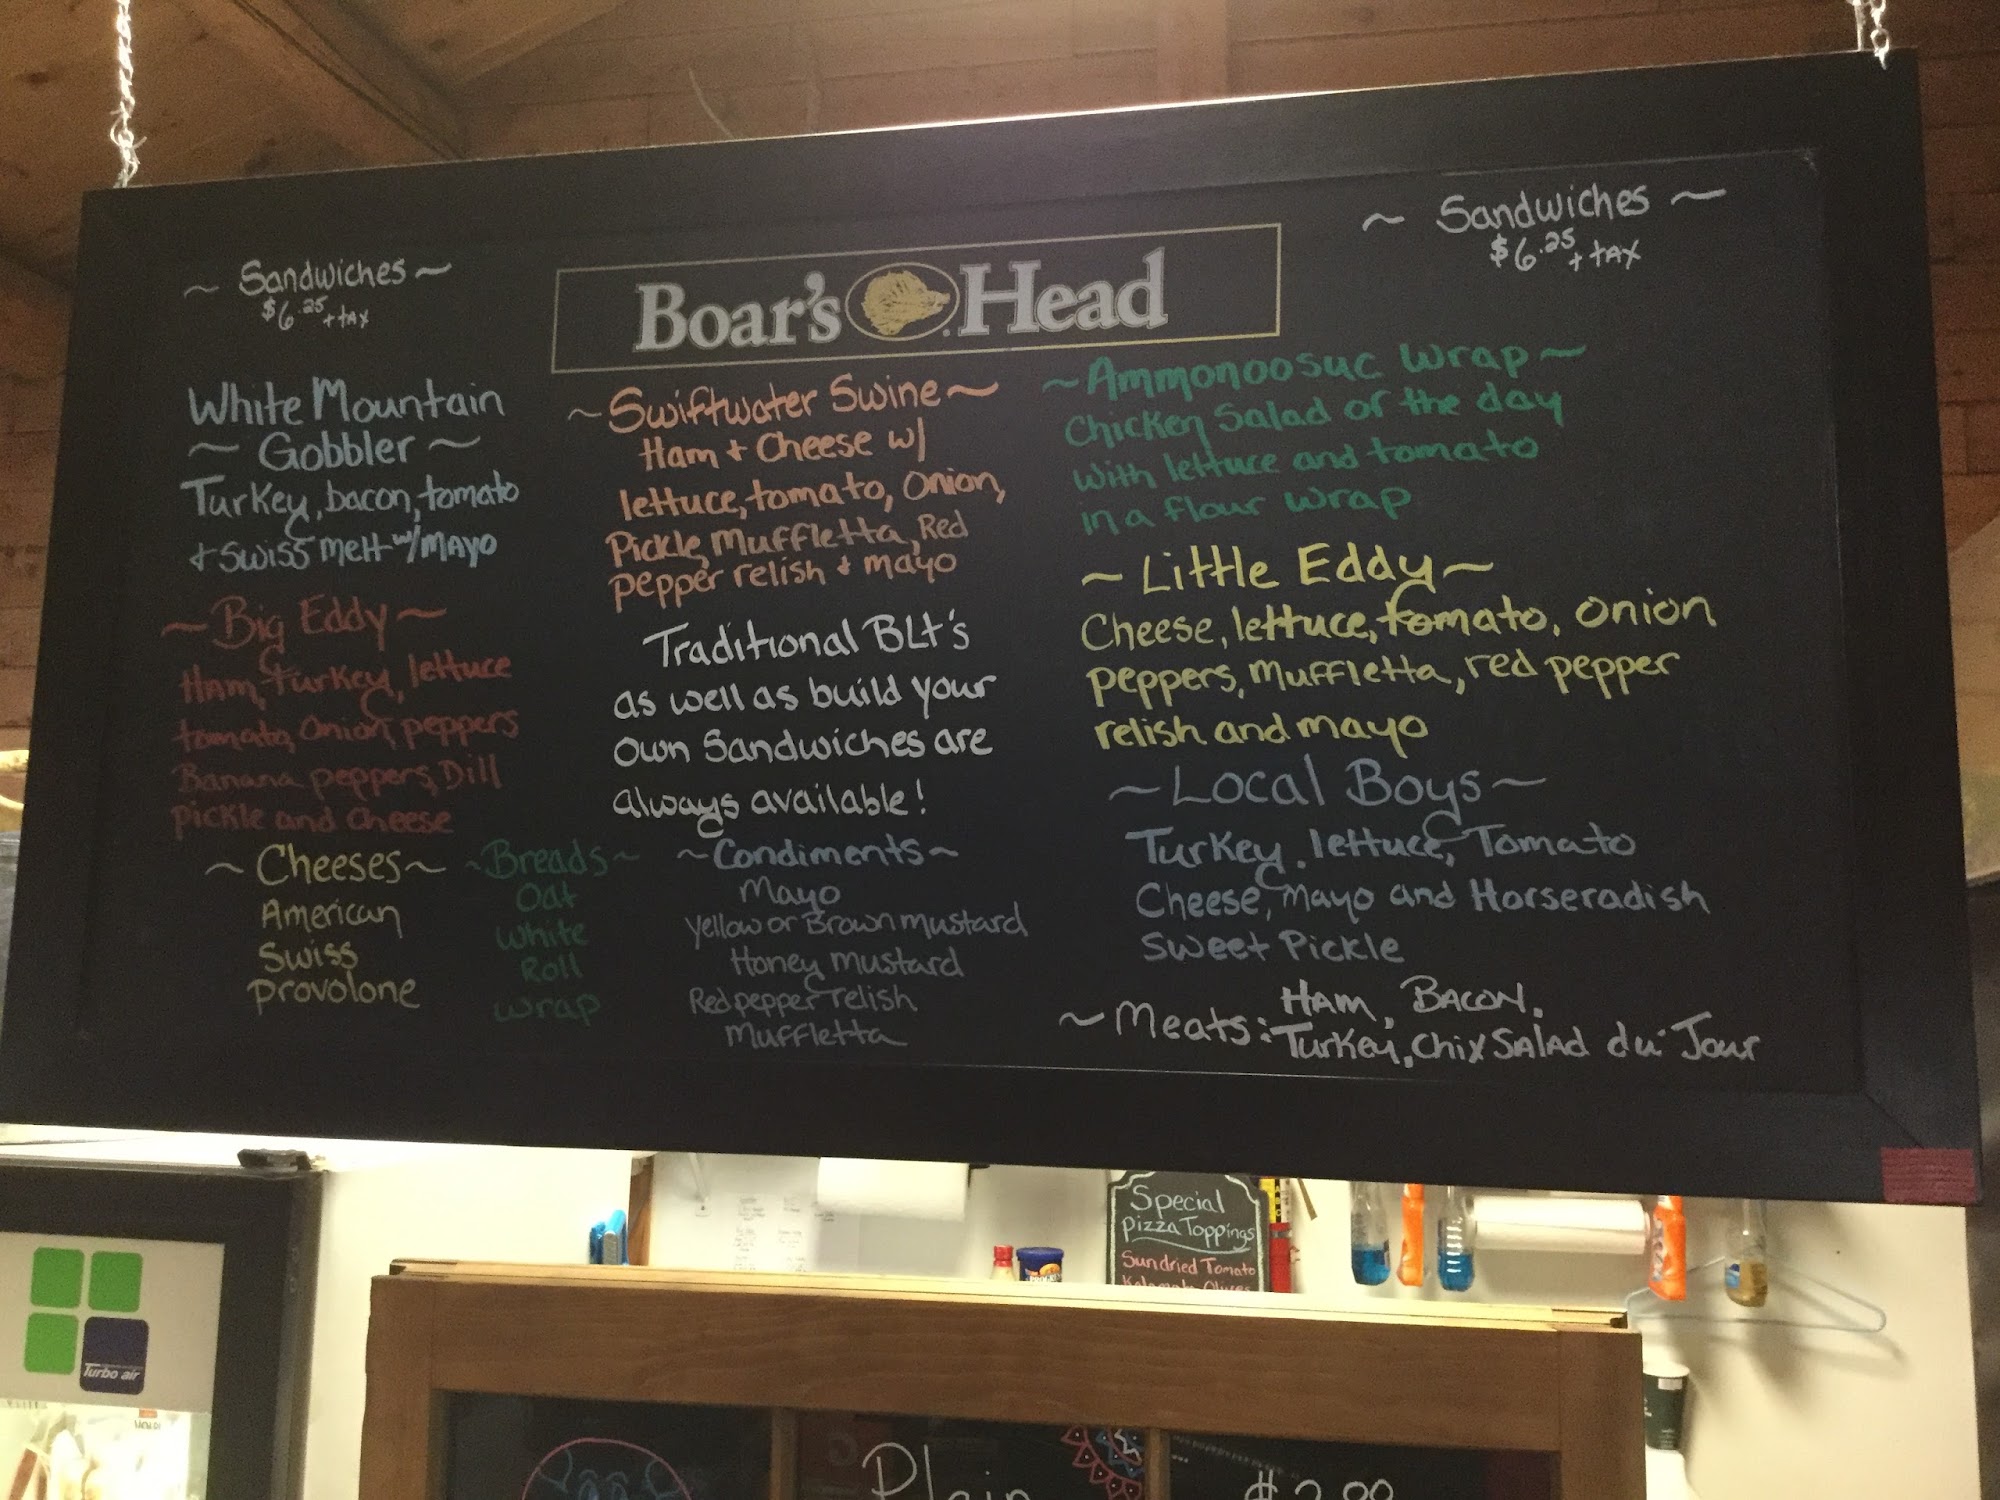 ~ Sandwiches ~
$6.25 + tax
Boar's Head
~ Sandwiches ~
$6.25 + tax
White Mountain
~ Gobbler ~
Turkey, bacon, tomato
+ Swiss melt w/ mayo
~ Big Eddy ~
Ham, turkey, lettuce
tomato, onion, peppers
Banana peppers, Dill
pickle and cheese
~ Swiftwater Swine ~
Ham + Cheese w/
lettuce, tomato, onion,
Pickle, Muffletta, Red
pepper relish + mayo
Traditional BLt's
as well as build your
own Sandwiches are
always available!
~ Ammonoosuc Wrap ~
Chicken Salad of the day
with lettuce and tomato
in a flour wrap
~ Little Eddy ~
Cheese, lettuce, tomato, onion
peppers, Muffletta, red pepper
relish and mayo
~ Local Boys ~
Turkey, lettuce, Tomato
Cheese, mayo and Horseradish
Sweet Pickle
~ Cheeses ~
American
Swiss
provolone
~ Breads ~
Oat
White
Roll
wrap
~ Condiments ~
Mayo
Yellow or Brown mustard
Honey mustard
Red pepper relish
Muffletta
~ Meats: Ham, Bacon,
Turkey, Chix Salad du Jour
Special
Pizza Toppings
Sundried Tomato
Kalamata Olives
Turbo air
Plain